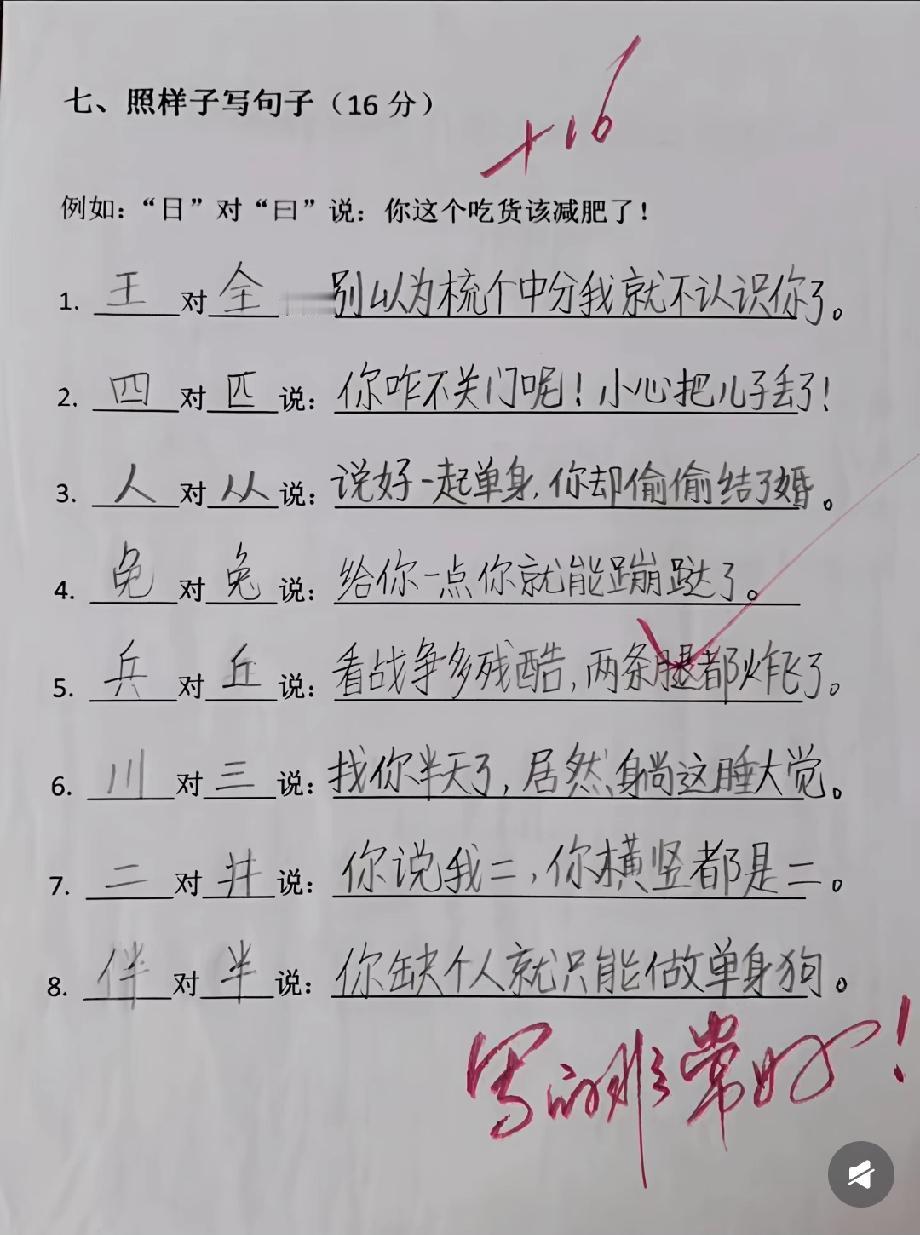 七、照样子写句子（16 分）
+16
例如：“日”对“曰”说：你这个吃货该减肥了！
1. 王 对 全 别以为梳个中分我就不认识你了。
2. 四 对 匹 说：你咋不关门呢！小心把儿子丢了！
3. 人 对 从 说：说好一起单身，你却偷偷结了婚。
4. 免 对 兔 说：给你一点你就能蹦跶了。
5. 兵 对 丘 说：看战争多残酷，两条腿都炸飞了。
6. 川 对 三 说：找你半天了，居然躺这睡大觉。
7. 二 对 井 说：你说我二，你横竖都是二。
8. 伴 对 半 说：你缺个人就只能做单身狗。
写的非常好！